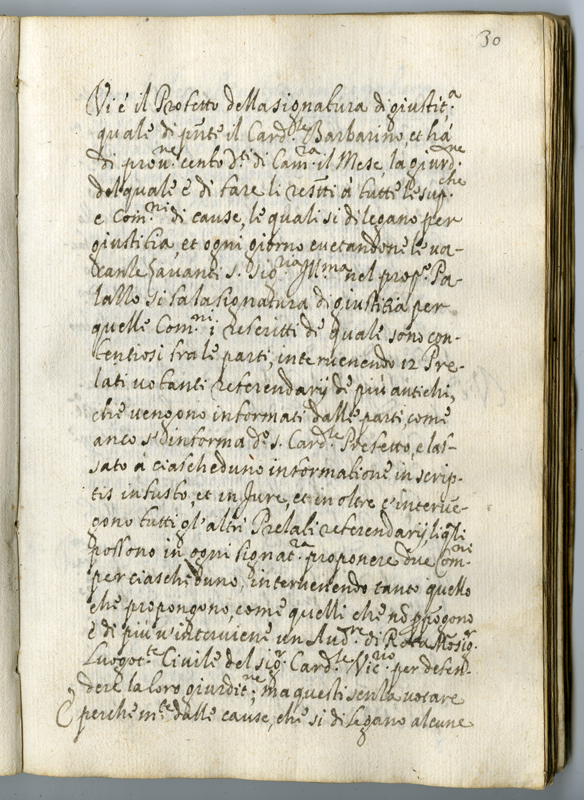 30
Vi é il Prefetto della signatura di giustit.a
quale di pnte il Card.le Barbarino et há
di prou.ne cento d.ti di Cam.ra il Mese, la giurd.ne
del quale é di fare li resti á tutte le sup.che
e Com.ni di cause, le quali si dilegano per
giustitia, et ogni giorno euetandone le ua-
cante avanti S. Sig.ria Ill.ma nel prop.o Pa-
lazzo si fa la signatura di giustitia per
quelle Com.ni i rescritti de quale sono con-
tentiosi fra le parti, interuenendo 12 Pre-
lati uotanti referendarij de piú antichi,
che uengono informati dalle parti come
anco s'informa d.o S. Card.le Prefetto, e las-
sato á ciascheduno informatione in scrip-
tis in fusto, et in Jure, et in oltre c'interue-
gono tutti gl'altri Prelati referendarij, liqli
possono in ogni signat.ra proponere due Com.ni
per ciascheduno, interuenendo tanto quello
che propongono, come quelli che nõ ppogono
e di piú u'interuiene un Aud.re di Rota Mosig.r
Luogot.te Ciuile del sig.r Card.le Vic.rio per defen-
dere la loro giurdit.ne, ma questi senza uotare
e perche m.te dalle cause, che si dilegano alcune